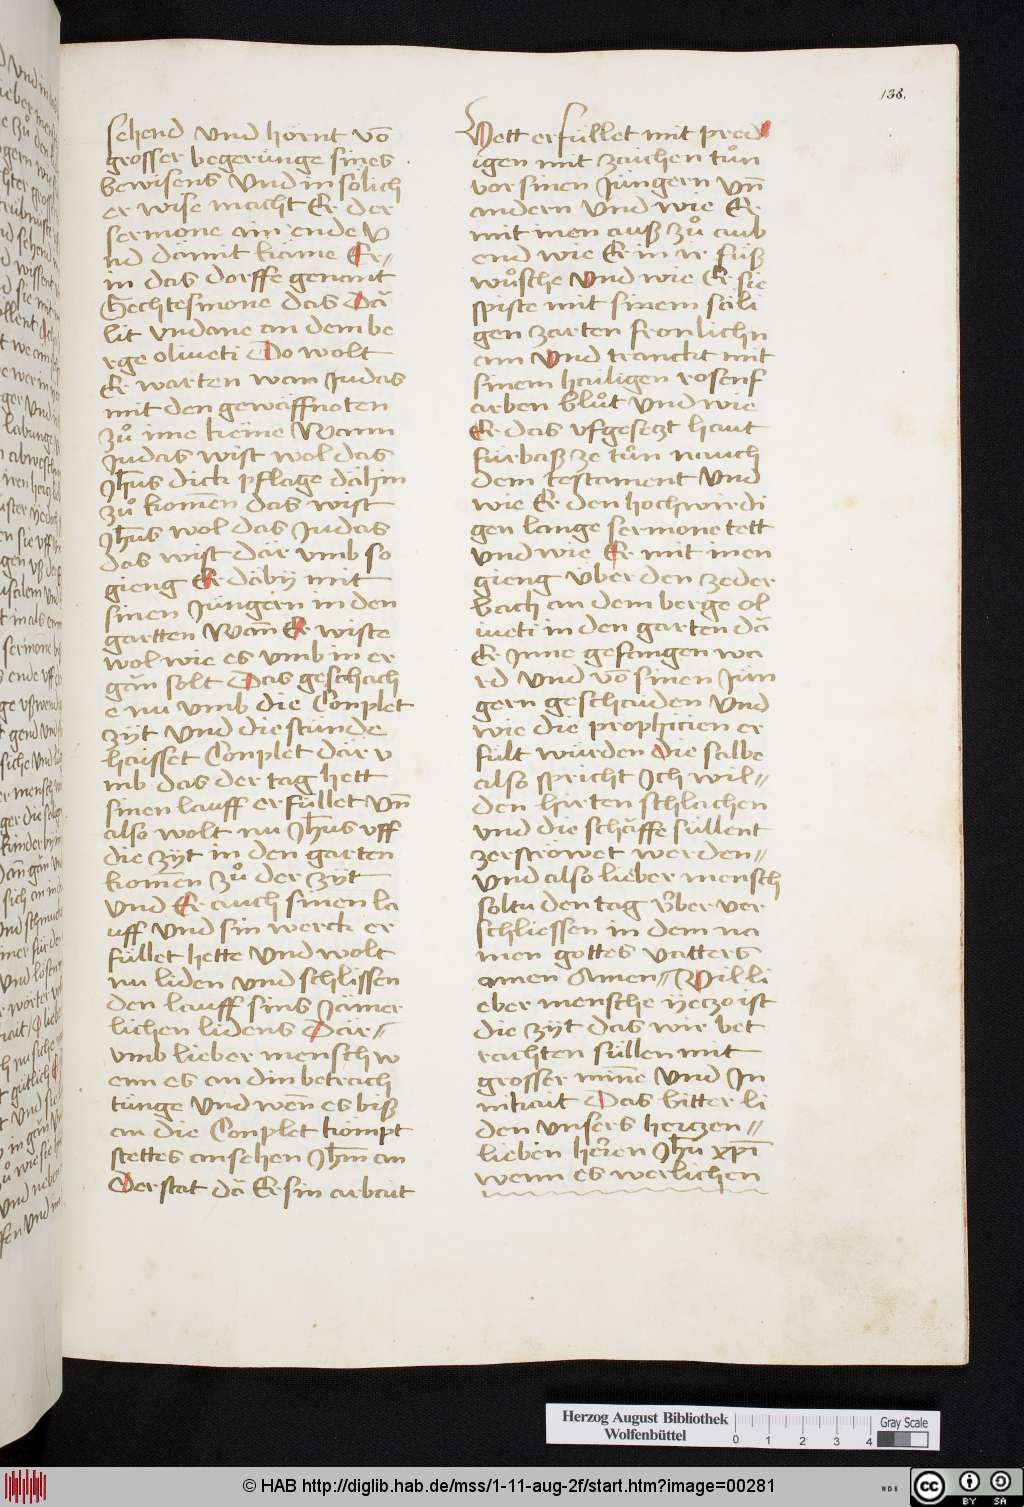 138.
sehend vnd hörnt vō
grosser begerünge sines
bewisens Vnd in sölich
er wise macht Er der
sermone ain ende v
nd dämit käme Er//
in das dorffe genant
Gechtesmone das Dä
lit vndane an dem be
rge oliueti Do wolt
Er warten wan Judas
mit den gewäffnoten
zů ime keine Wann
Judas wist wol das
Jhūs dick pflage dähin
zů komēn das wist
Jhūs wol das Judas
das wist där vmb so
gieng Er däbÿ mit
sinen Jüngern in den
gartten Wañ Er wiste
wol wie es vmb in er
gän solt Das geschach
e nu vmb die Conplet
zÿt Vnd die stünde
haisset Conplet där v
mb das der tag hett
sinen lauff erfüllet vn̄
also wolt nu Jhūs vff
die zÿt in den garten
komēn zů der zÿt
Vnd Er auch sinen la
uff Vnd sin werck er
füllet hette Vnd wolt
nu liden vnd schlissen
den lauff sins Jämer
lichen lidens Där//
vmb lieber mensch w
enn es an din betrach
tünge Vnd wēn es biß
an die Conplet kömpt
stettes ansehen Jhm̄ an
Der stat dä Er sin arbait
Hett erfüllet mit pred
igen mit zaichen tůn
vor sinen Jüngern vn̄
andern Vnd wie Er
mit inen auß zů aub
end wie Er in ir füß
wůsche Vnd wie Er sie
spiste mit sinem säli
gen zarten fronlichn
am Vnd tranckt mit
sinem hailigen rosenf
arben blůt Vnd wie
Er das vfgesetzt haut
fürbaß ze tůn nauch
dem testament Vnd
wie Er den hochwirdi
gen lange sermone tett
vnd wie Er mit inen
gieng Über den zeder
bach an dem berge ol
iueti in den garten dä
Er Inne gefangen wa
rd Vnd vō sinen Jün
gern geschaiden Vnd
wie die prophicien er
fült würden die salbe
also spricht Ich wil//
den hirten schlachen
vnd die schäffe süllent
zerströwet werden//
Vnd also lieber mensch
soltu den tag v̈ber ver
schliessen in dem na
men gottes vatters
amen Amen// Vil li
eber mensche ÿetzo ist
die zÿt das wir bet
rachten süllen mit
grosser miñe Vnd In
nikait Das bitter li
den Vnsers hertzen//
lieben heren Jhū xp̄i
wenn es werlichen
Herzog August Bibliothek
Wolfenbüttel
0 1 2 3 4
Gray Scale
© HAB http://diglib.hab.de/mss/1-11-aug-2f/start.htm?image=00281
WDB
cc BY SA